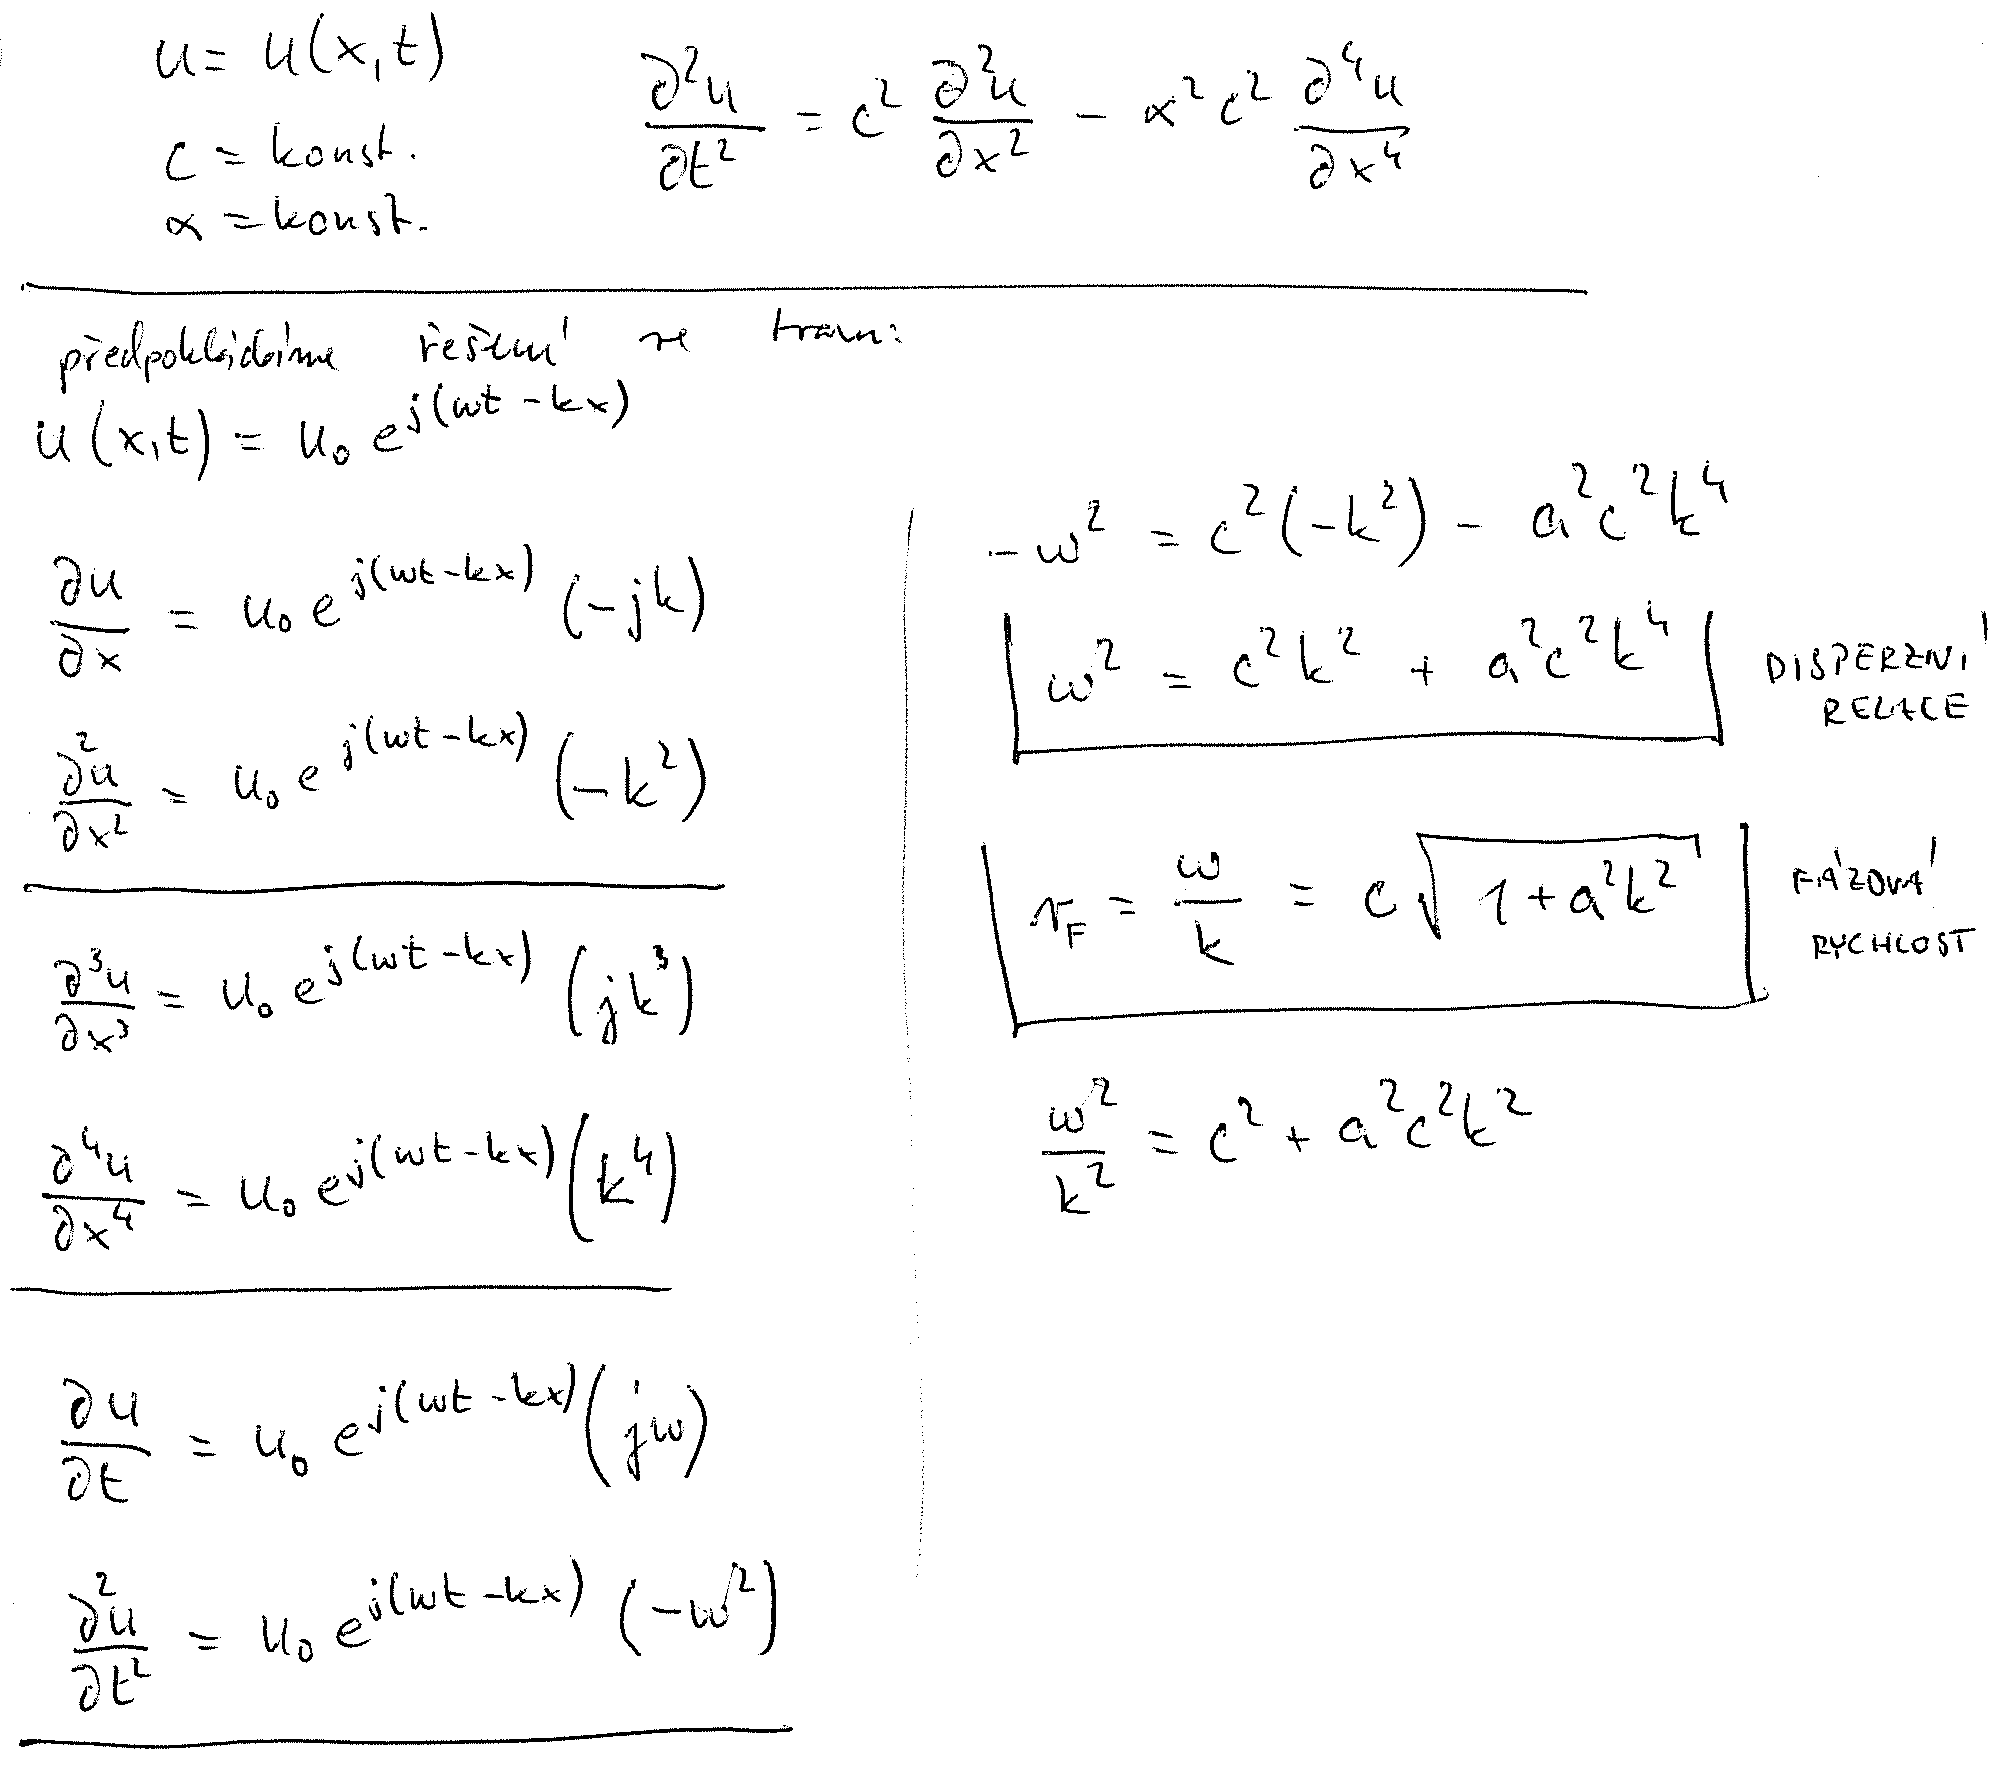 u = u(x,t)
c = konst.
α = konst.
∂²u/∂t² = c² ∂²u/∂x² - α² c² ∂⁴u/∂x⁴
předpokládáme řešení ve tvaru:
u(x,t) = u₀ e^{j(ωt - kx)}
∂u/∂x = u₀ e^{j(ωt-kx)} (-jk)
∂²u/∂x² = u₀ e^{j(ωt-kx)} (-k²)
∂³u/∂x³ = u₀ e^{j(ωt-kx)} (jk³)
∂⁴u/∂x⁴ = u₀ e^{j(ωt-kx)} (k⁴)
∂u/∂t = u₀ e^{j(ωt-kx)} (jω)
∂²u/∂t² = u₀ e^{j(ωt-kx)} (-ω²)
-ω² = c²(-k²) - a²c²k⁴
ω² = c²k² + a²c²k⁴
DISPERZNÍ
RELACE
v_F = ω/k = c√(1+a²k²)
FÁZOVÁ
RYCHLOST
ω²/k² = c² + a²c²k²